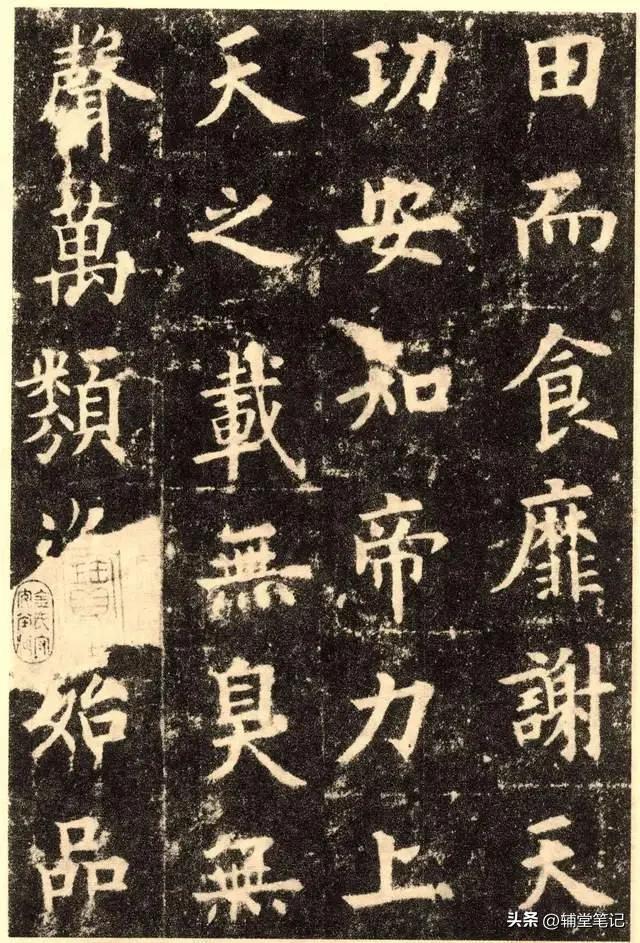 田而食靡謝天
功安知帝力上
天之載無臭無
聲萬類
始品
頭条@辅堂笔记